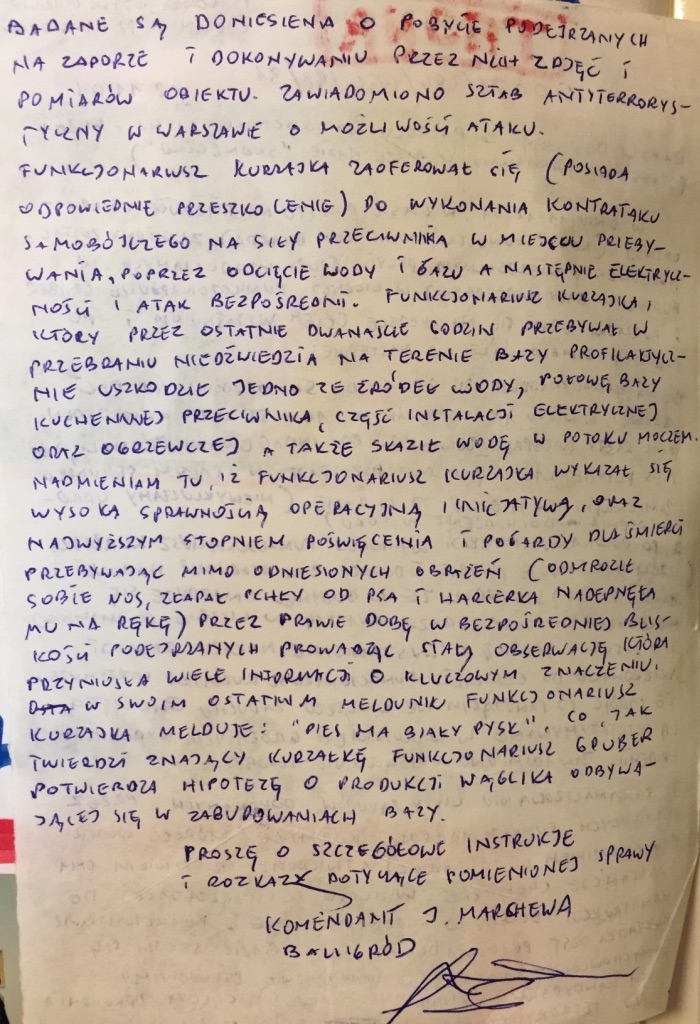 BADANE SĄ DONIESIENIA O POBYCIE PODEJRZANYCH
NA ZAPORZE I DOKONYWANIU PRZEZ NICH ZDJĘĆ I
POMIARÓW OBIEKTU. ZAWIADOMIONO SZTAB ANTYTERRORYS-
TYCZNY W WARSZAWIE O MOŻLIWOŚCI ATAKU.
FUNKCJONARIUSZ KURZAJKA ZAOFEROWAŁ SIĘ (POSIADA
ODPOWIEDNIE PRZESZKOLENIE) DO WYKONANIA KONTRATAKU
SAMOBÓJCZEGO NA SIŁY PRZECIWNIKA W MIEJSCU PRZEBY-
WANIA, POPRZEZ ODCIĘCIE WODY I GAZU A NASTĘPNIE ELEKTRYCZ-
NOŚCI I ATAK BEZPOŚREDNI. FUNKCJONARIUSZ KURZAJKA,
KTÓRY PRZEZ OSTATNIE DWANAŚCIE GODZIN PRZEBYWAŁ W
PRZEBRANIU NIEDŹWIEDZIA NA TERENIE BAZY PROFILAKTYCZ-
NIE USZKODZIŁ JEDNO ZE ŹRÓDEŁ WODY, POŁOWĘ BAZY
KUCHENNEJ PRZECIWNIKA, CZĘŚĆ INSTALACJI ELEKTRYCZNEJ
ORAZ OGRZEWCZEJ A TAKŻE SKAZIŁ WODĘ W POTOKU MOCZEM.
NADMIENIAM TU, IŻ FUNKCJONARIUSZ KURZAJKA WYKAZAŁ SIĘ
WYSOKĄ SPRAWNOŚCIĄ OPERACYJNĄ I INICJATYWĄ, ORAZ
NAJWYŻSZYM STOPNIEM POŚWIĘCENIA I POGARDY DLA ŚMIERCI
PRZEBYWAJĄC MIMO ODNIESIONYCH OBRAŻEŃ (ODMROZIŁ
SOBIE NOS, ZŁAPAŁ PCHŁY OD PSA I HARCERKA NADEPNĘŁA
MU NA RĘKĘ) PRZEZ PRAWIE DOBĘ W BEZPOŚREDNIEJ BLIS-
KOŚCI PODEJRZANYCH PROWADZĄC STAŁĄ OBSERWACJĘ KTÓRA
PRZYNIOSŁA WIELE INFORMACJI O KLUCZOWYM ZNACZENIU.
W SWOIM OSTATNIM MELDUNKU FUNKCJONARIUSZ
KURZAJKA MELDUJE: "PIES MA BIAŁY PYSK". CO, JAK
TWIERDZI ZNAJĄCY KURZAJKĘ FUNKCJONARIUSZ GRUBER
POTWIERDZA HIPOTEZĘ O PRODUKCJI WĄGLIKA ODBYWA-
JĄCEJ SIĘ W ZABUDOWANIACH BAZY.
PROSZĘ O SZCZEGÓŁOWE INSTRUKCJE
I ROZKAZY DOTYCZĄCE POMIENIONEJ SPRAWY
KOMENDANT J. MARCHEWA
BALIGRÓD